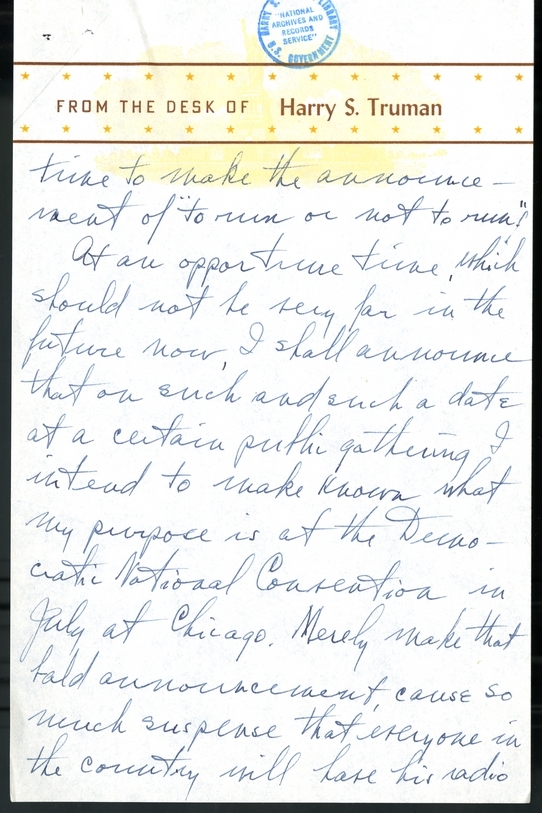 HARRY S. LIBRARY
"NATIONAL
ARCHIVES AND
RECORDS
SERVICE"
U.S. GOVERNMENT
FROM THE DESK OF Harry S. Truman
time to make the announce-
ment of "to run or not to run".
At an opportune time, which
should not be very far in the
future now, I shall announce
that on such and such a date
at a certain public gathering I
intend to make known what
my purpose is at the Demo-
cratic National Convention in
July at Chicago. Merely make that
bald announcement, cause so
much suspense that everyone in
the country will have his radio